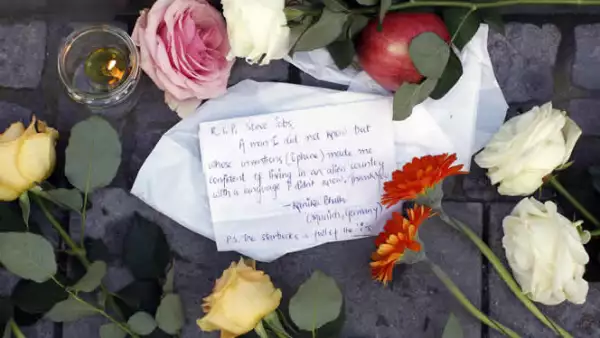 R.I.P. Steve Jobs,
A man I did not know but
whose inventions (iphone) made me
confident of living in an alien country
with a language I didnt know. Thank
(Munich, Germany)
P.S. The starbucks is full of the